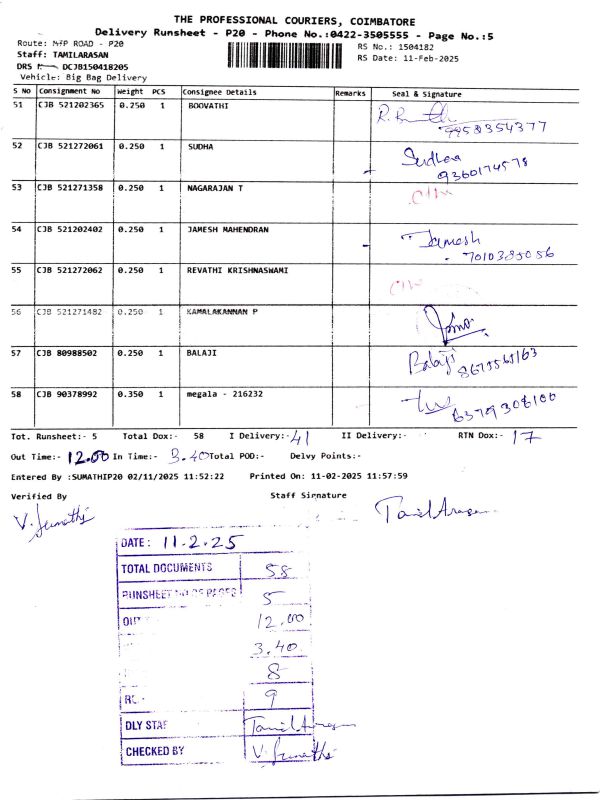 THE PROFESSIONAL COURIERS, COIMBATORE
Delivery Runsheet - P20 - Phone No.:0422-3505555 - Page No.:5
Route: MTP ROAD - P20
RS No.: 1504182
Staff: TAMILARASAN
RS Date: 11-Feb-2025
DRS DCJB150418205
Vehicle: Big Bag Delivery
S No Consignment No Weight PCS Consignee Details Remarks Seal & Signature
51 CJB 521202365 0.250 1 BOOVATHI
9958354377
52 CJB 521272061 0.250 1 SUDHA Sudhaa
9360174578
53 CJB 521271358 0.250 1 NAGARAJAN T
54 CJB 521202402 0.250 1 JAMESH MAHENDRAN Jamesh
7010385056
55 CJB 521272062 0.250 1 REVATHI KRISHNASWAMI
56 CJB 521271482 0.250 1 KAMALAKANNAN P
57 CJB 80988502 0.250 1 BALAJI Balaji
58 CJB 90378992 0.350 1 megala - 216232
Tot. Runsheet:- 5 Total Dox:- 58 I Delivery:- 41 II Delivery:- RTN Dox:- 17
Out Time:- 12.00 In Time:- 3.40 Total POD:- Delvy Points:-
Entered By :SUMATHIP20 02/11/2025 11:52:22 Printed On: 11-02-2025 11:57:59
Verified By Staff Signature
V. Sumathi TamilArasan
DATE: 11.2.25
TOTAL DOCUMENTS 58
RUNSHEET NO OF PAGES 5
OUT 12.00
3.40
8
9
DLY STAF TamilArasan
CHECKED BY V. Sumathi